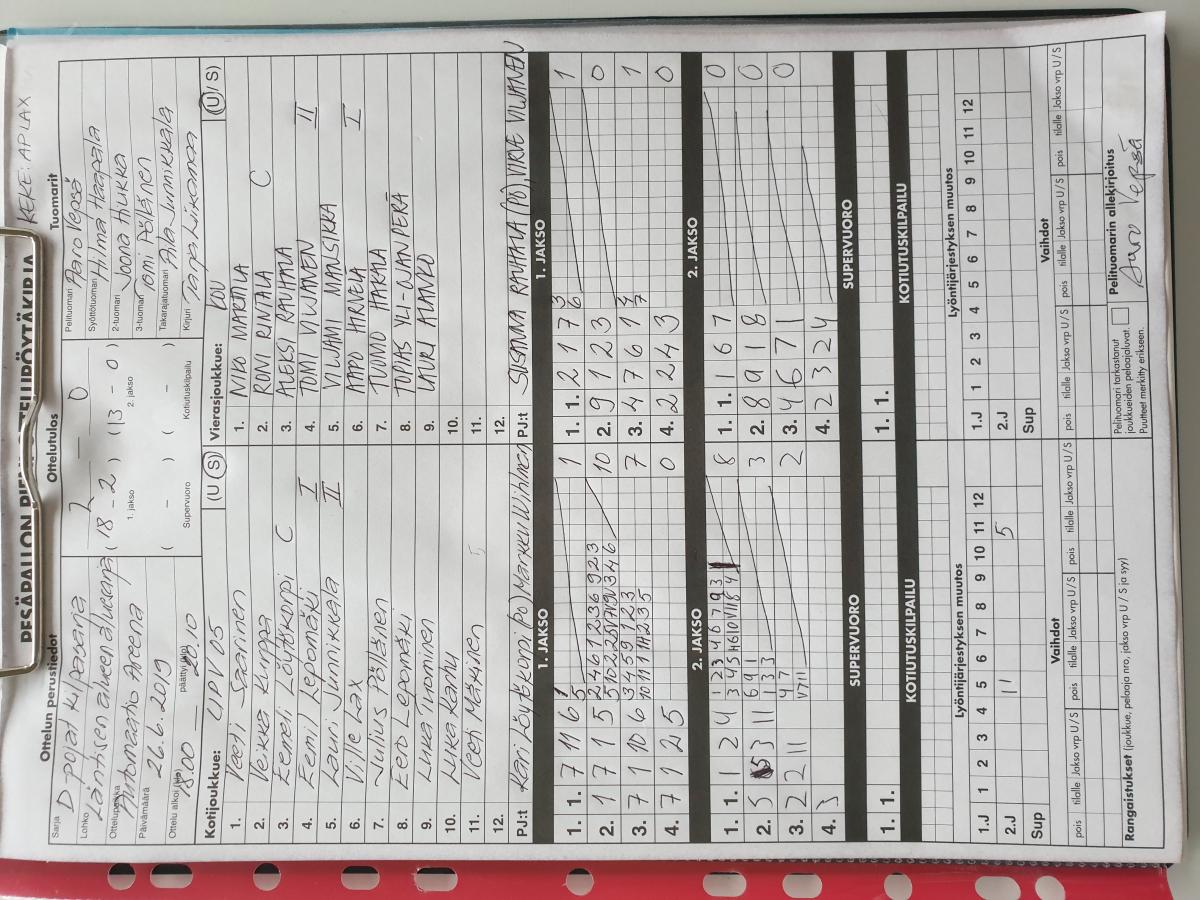 KEKE: AP LAX
Ottelun perustiedot
Ottelutulos
Tuomarit
Sarja D-pojat kilpasarja
Lohko Läntisen alueen aluesarja
Ottelupaikka Automaatio Areena
Päivämäärä 26.6.2019
Ottelu alkoi (klo) 18.00
päättyi (klo) 20.10
2 — 0
( 18 - 2 ) ( 13 - 0 )
1. jakso 2. jakso
( - ) ( - )
Supervuoro Kotiutuskilpailu
Pelituomari Aaro Vepsä
Syöttötuomari Hilma Haapala
2-tuomari Joona Hiukka
3-tuomari Tomi Pölönen
Takarajatuomari
Kirjuri Tarja Liikamaa
Kotijoukkue: UPV 05 (U S)
1. Veeti Saarinen
2. Veikka Loppa
3. Eemeli Löytökorpi C
4. Eemil Lepomäki I
5. Lauri Junnikkala II
6. Ville Lax
7. Julius Pölönen
8. Eero Lepomäki
9. Miika Tuominen
10. Luka Karhu
11. Veeti Mäkinen
12.
PJ:t Kari Löytökorpi (PO) Markku Wihinen
Vierasjoukkue: LOU (U / S)
1. NIKO MARTTILA
2. RONI RINTALA C
3. ALEKSI RAUHALA
4. TOMI VILJANEN II
5. VILJAMI MANSIKKA
6. AAPO HIRVELÄ I
7. TUOMO HAKALA
8. TOPIAS YLI-OJANPERÄ
9. LAURI ALANKO
10.
11.
12.
PJ:t SUSANNA RAUHALA (PO), VIRJE VILJANEN
1. JAKSO
1. 1. 7 11 6 1
2. 1 7 1 5 10
3. 7 1 10 6 7
4. 7 1 2 5 0
1. JAKSO
1. 1. 2 1 7 1
2. 9 1 2 3 0
3. 4 7 6 1 1
4. 2 2 4 3 0
2. JAKSO
1. 1. 1 2 4 8
2. 5 3 11 3
3. 2 2 11 2
4. 3
2. JAKSO
1. 1. 1 6 7 0
2. 8 9 1 8 0
3. 4 6 7 1 0
4. 2 3 2 4
SUPERVUORO
1. 1.
SUPERVUORO
1. 1.
KOTIUTUSKILPAILU
KOTIUTUSKILPAILU
Lyöntijärjestyksen muutos
1.J 1 2 3 4 5 6 7 8 9 10 11 12
2.J 11 5
Sup
Lyöntijärjestyksen muutos
1.J 1 2 3 4 5 6 7 8 9 10 11 12
2.J
Sup
Vaihdot
pois tilalle Jakso vrp U / S pois tilalle Jakso vrp U / S pois tilalle Jakso vrp U / S
Vaihdot
pois tilalle Jakso vrp U / S pois tilalle Jakso vrp U / S pois tilalle Jakso vrp U / S
Rangaistukset (joukkue, pelaaja nro, jakso vrp U / S ja syy)
Pelituomari tarkastanut
joukkueiden pelaajaluvat.
Puutteet merkitty erikseen.
Pelituomarin allekirjoitus
Aaro Vepsä